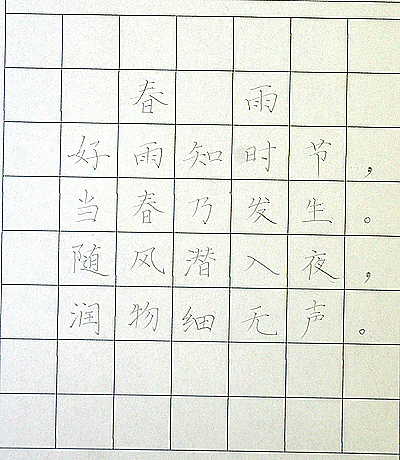 春 雨
好雨知时节，
当春乃发生。
随风潜入夜，
润物细无声。